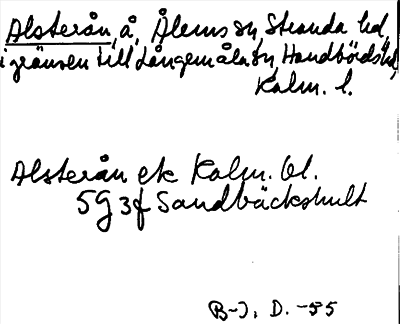 Alsterån, å, Ålems sn, Stranda hd,
i gränsen till Långemåla sn, Handbörds hd,
Kalm. l.
Alsterån ek Kalm. bl.
5G 3f Sandbäckshult
B-J, D. -55